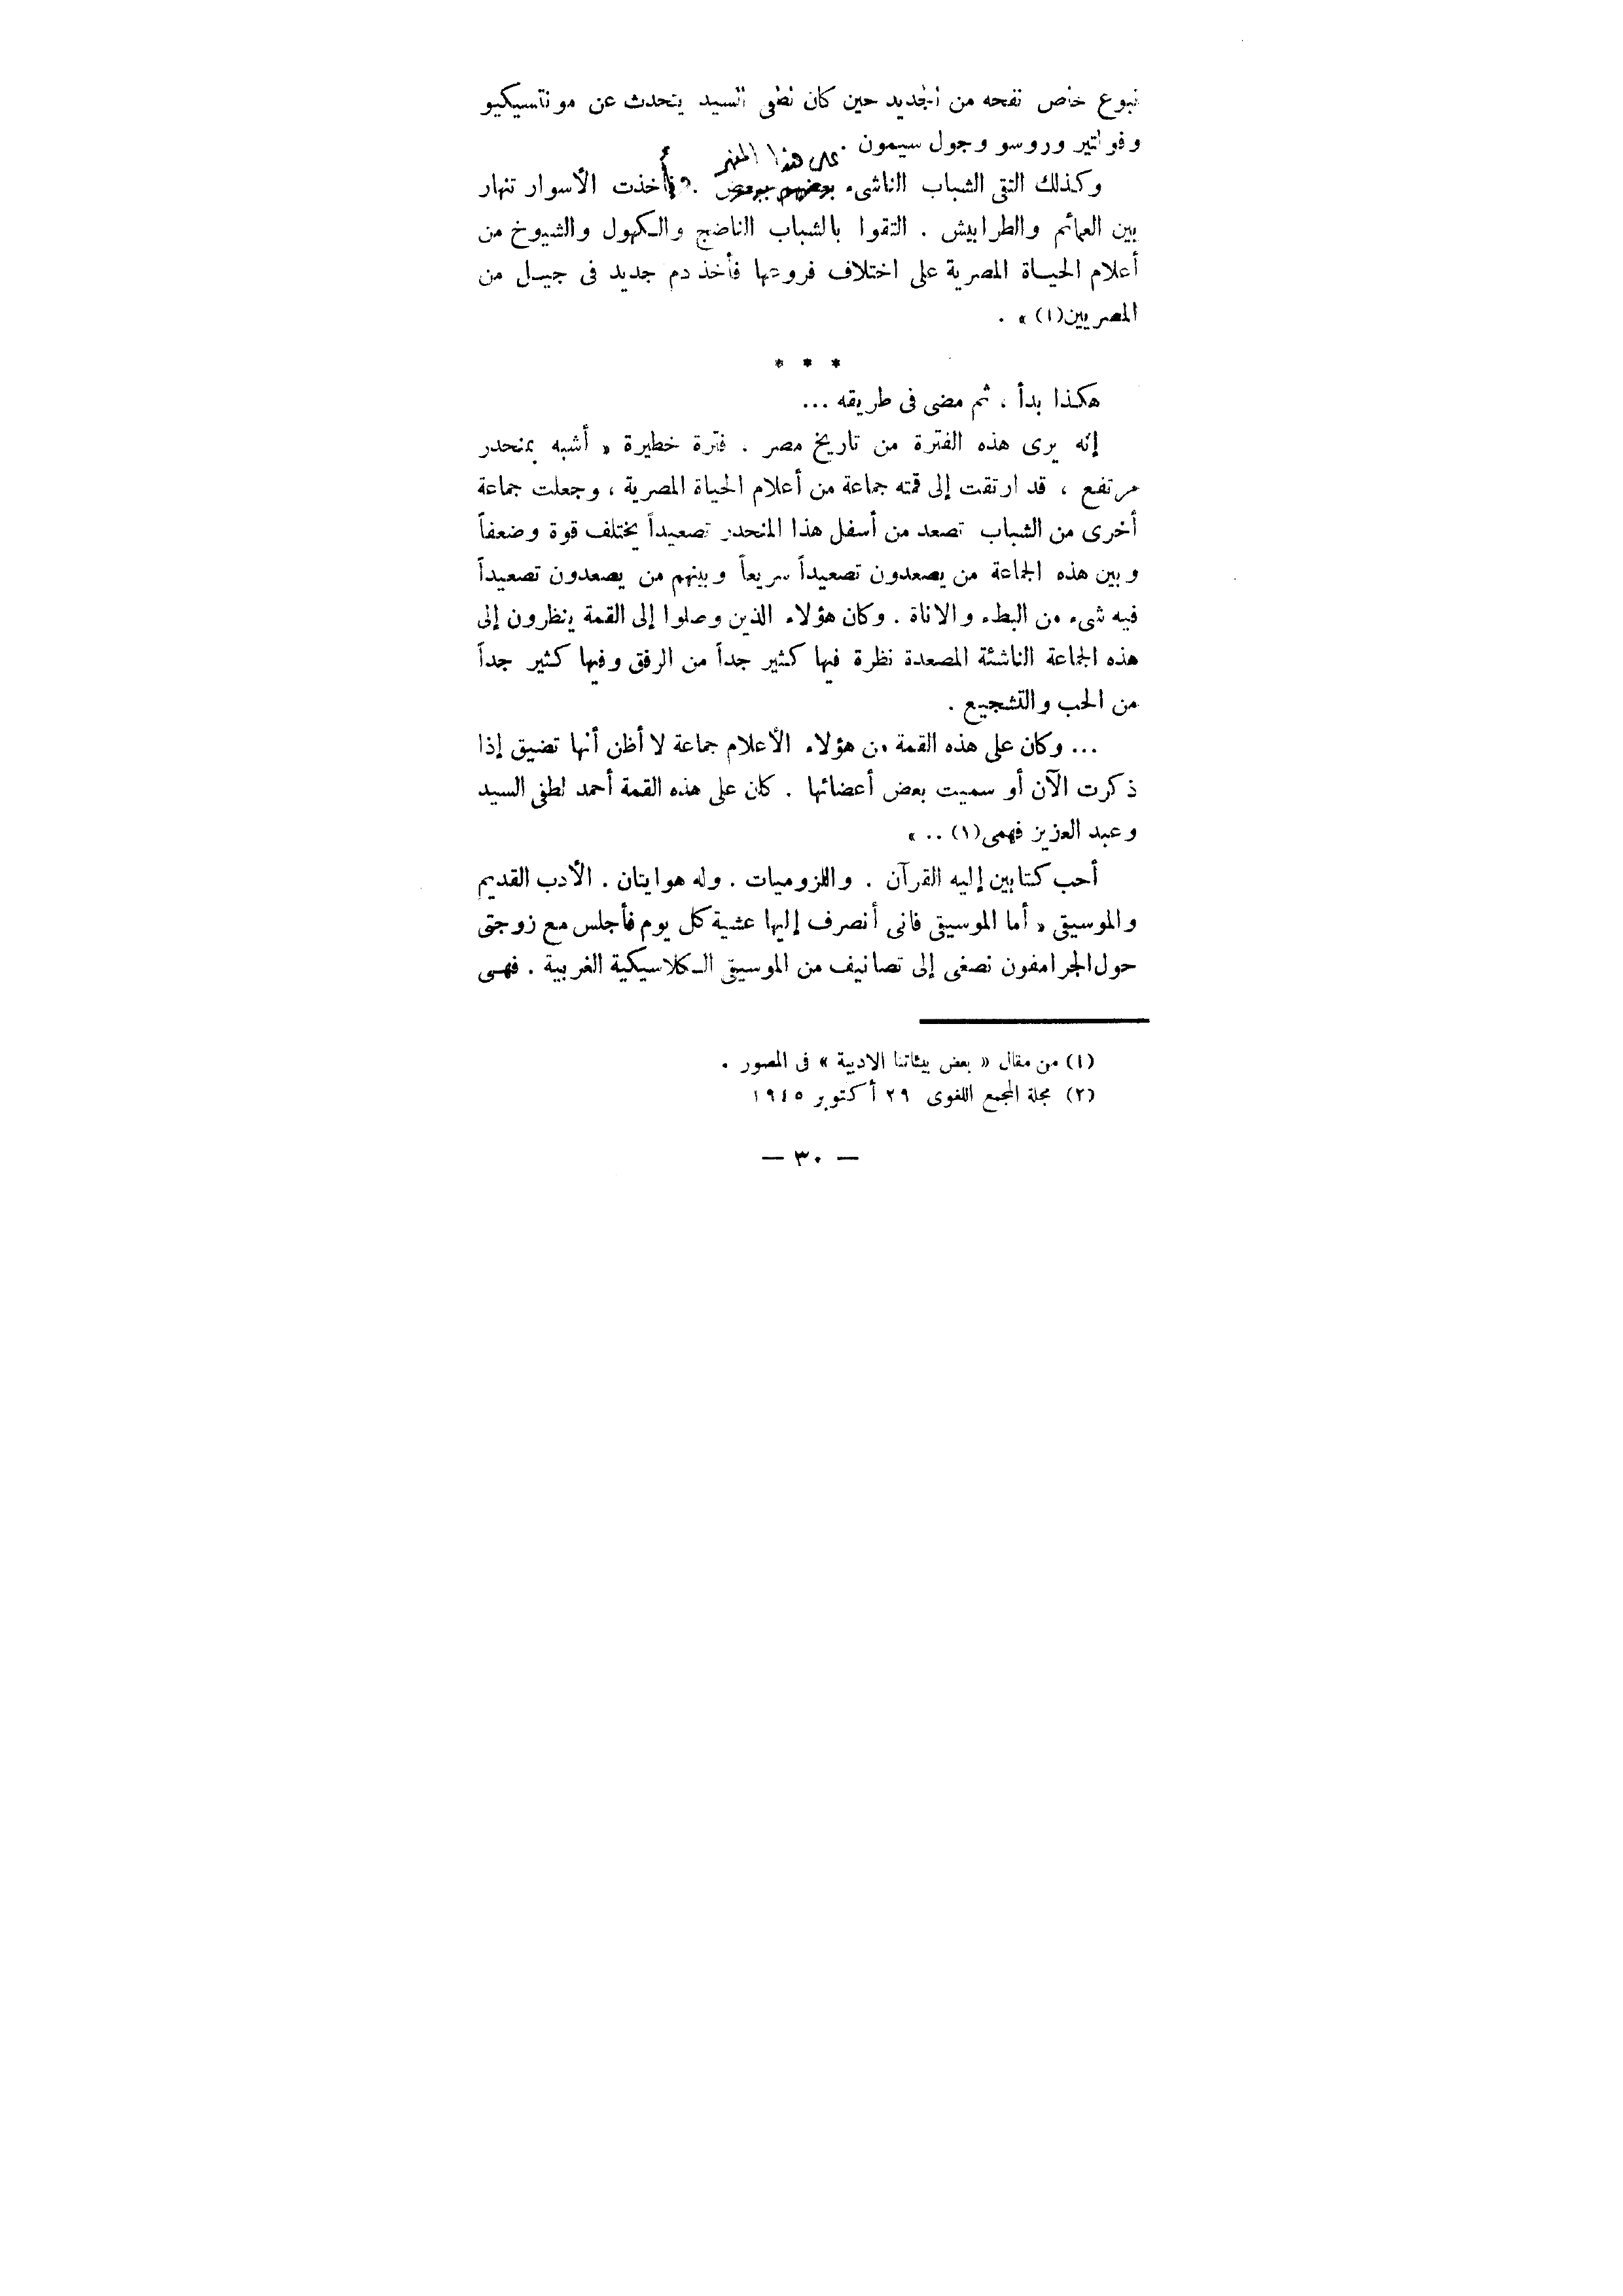 نبوع خاص نفحه من الجديد حين كان لطفى السيد يتحدث عن مونتسيكيو
وفولتير وروسو وجول سيمون .
على هذا
وكذلك التقى الشباب الناشىء بعضهم ببعض . فأخذت الأسوار تنهار
بين العمائم والطرابيش . التقوا بالشباب الناضج والكهول والشيوخ من
أعلام الحياة المصرية على اختلاف فروعها فأخذ دم جديد فى جيل من
المصريين(١) » .
* * *
هكذا بدأ ، ثم مضى فى طريقه ...
إنه يرى هذه الفترة من تاريخ مصر . فترة خطيرة « أشبه بمنحدر
مرتفع ، قد ارتقت إلى قمته جماعة من أعلام الحياة المصرية ، وجعلت جماعة
أخرى من الشباب تصعد من أسفل هذا المنحدر تصعيداً يختلف قوة وضعفاً
وبين هذه الجماعة من يصعدون تصعيداً سريعاً وبينهم من يصعدون تصعيداً
فيه شىء من البطء والاناة . وكان هؤلاء الذين وصلوا إلى القمة ينظرون إلى
هذه الجماعة الناشئة المصعدة نظرة فيها كثير جداً من الرفق وفيها كثير جداً
من الحب والتشجيع .
... وكان على هذه القمة من هؤلاء الأعلام جماعة لا أظن أنها تضيق إذا
ذكرت الآن أو سميت بعض أعضائها . كان على هذه القمة أحمد لطفى السيد
وعبد العزيز فهمى(١) .. »
أحب كتابين إليه القرآن . واللزوميات . وله هوايتان . الأدب القديم
والموسيقى « أما الموسيقى فانى أنصرف إليها عشية كل يوم فأجلس مع زوجتى
حول الجرامفون نصغى إلى تصانيف من الموسيقى الكلاسيكية الغربية . فهى
(١) من مقال « بعض بيئاتنا الادبية » فى المصور .
(٢) مجلة المجمع اللغوى ٢٩ أكتوبر ١٩٤٥
— ٣٠ —